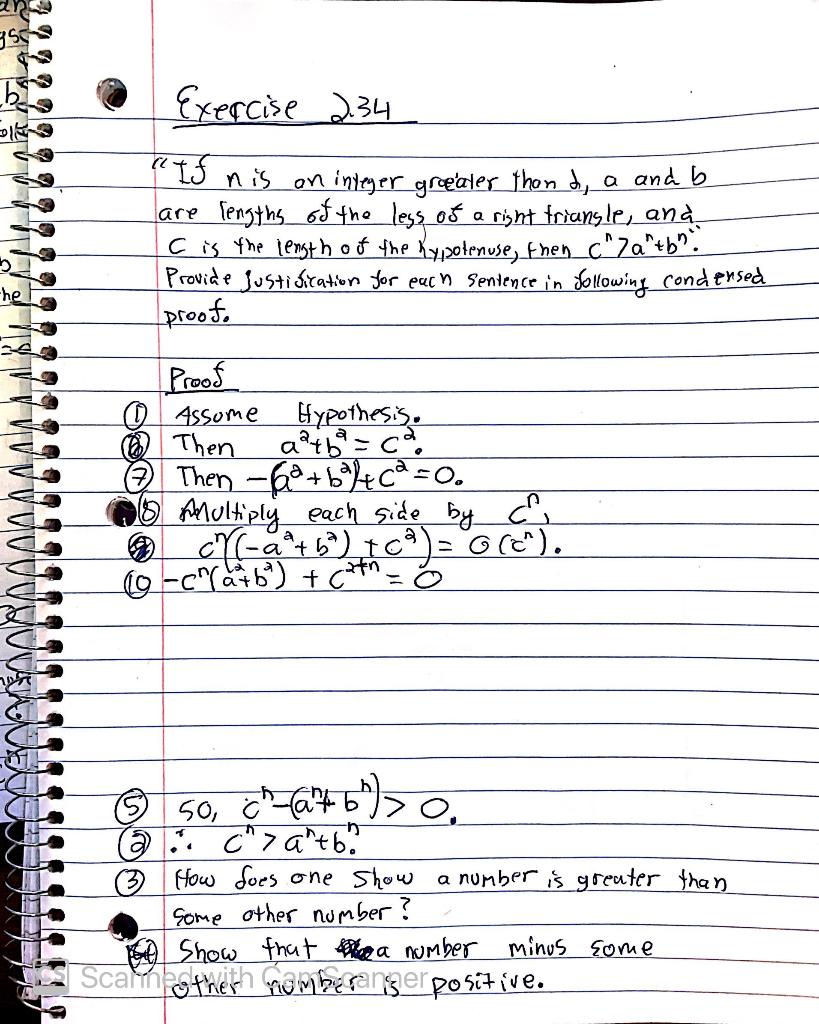 Exercise 2.34
"If n is an integer greater than 2, a and b
are lengths of the legs of a right triangle, and
C is the length of the hypotenuse, then cⁿ>aⁿ+bⁿ."
Provide justification for each sentence in following condensed
proof.
Proof
① Assume Hypothesis.
⑥ Then a²+b² = c².
⑦ Then -(a²+b²)+c²=0.
⑧ Multiply each side by cⁿ,
⑨ cⁿ((-a²+b²)+c²) = 0(cⁿ).
⑩ -cⁿ(a²+b²) + c²⁺ⁿ = 0
⑤ So, cⁿ-(aⁿ+bⁿ) > 0.
② ∴ cⁿ > aⁿ+bⁿ.
③ How does one show a number is greater than
some other number?
④ Show that a number minus some
other number is positive.
CS Scanned with CamScanner